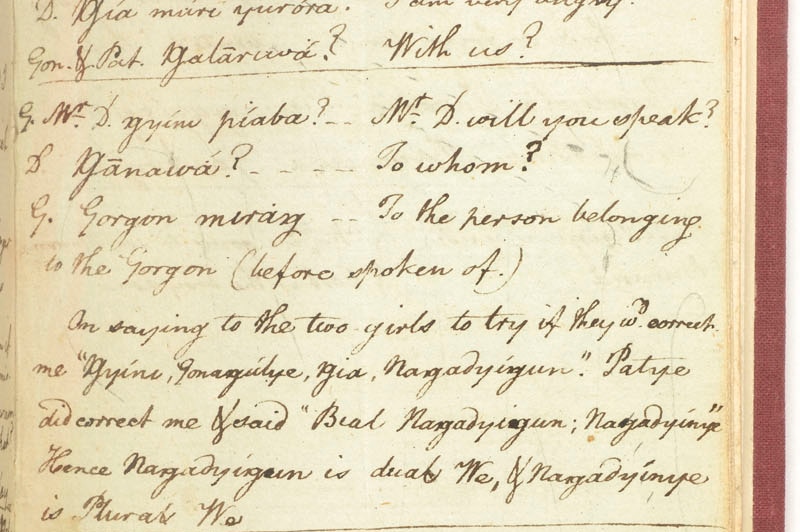 D. Ŋía mári yuróra. I am very angry.
Gon. & Pat. Ŋalāriwá? With us?
G. Mr. D. ŋyíni píaba? -- Mr. D. will you speak?
D. Ŋānawá? - - - - To whom?
G. Gorgon miráŋ -- To the person belonging
to the Gorgon (before spoken of.)
In saying to the two girls to try if they wd. correct
me "Ŋyíni, Gonaŋúlye, ŋia, Naŋadyíŋun". Patye
did correct me & said "Bial Naŋadyíŋun; Naŋadyínye"
Hence Naŋadyíŋun is dual We, & Naŋadyínye
is Plural We